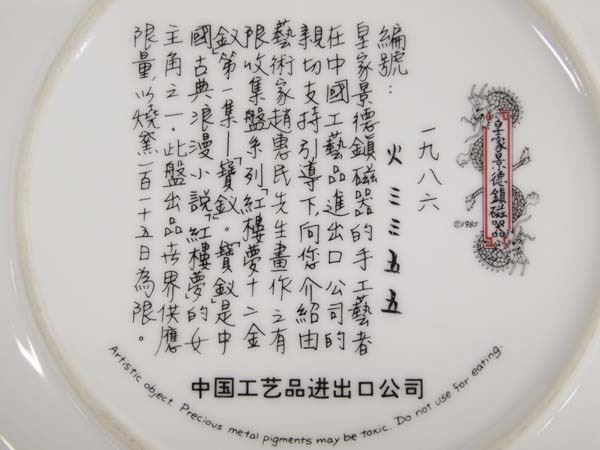 皇家景德鎮磁器
©1985
一九八六
編號：火三三五五
皇家景德鎮磁器的手工藝者
在中國工藝品進出口公司的
親切支持引導下，向您介紹由
藝術家趙惠民先生畫作之有
限收集盤系列「紅樓夢十二金
釵」第一集—「寶釵」。「寶釵」是中
國古典浪漫小說「紅樓夢」的女
主角之一．此盤出品世界供應
限量，以燒窯一百一十五日為限。
中国工艺品进出口公司
Artistic object. Precious metal pigments may be toxic. Do not use for eating.